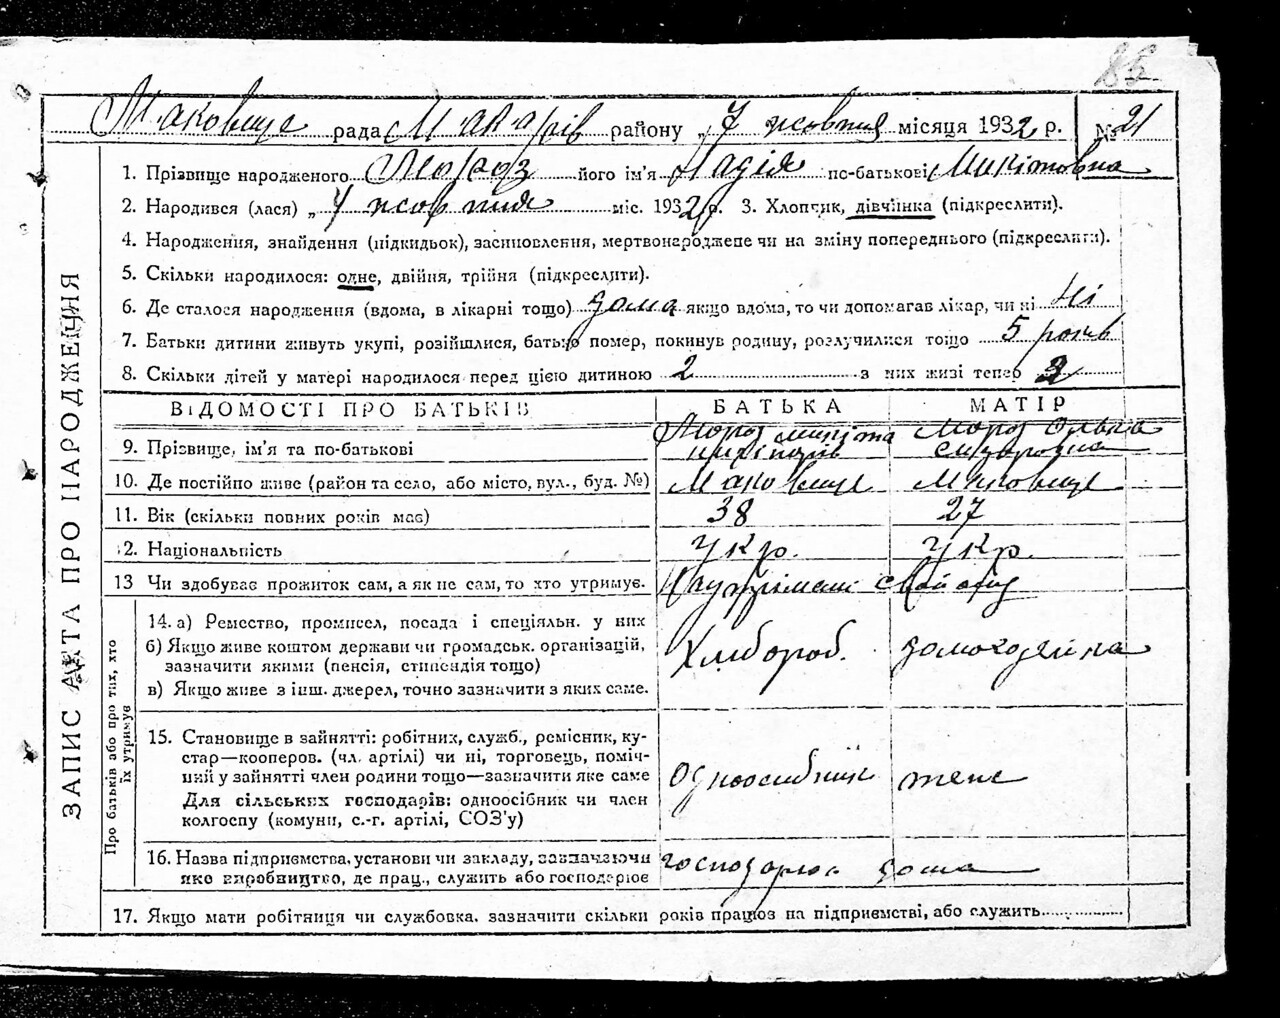 85
Маковище рада Макарів району „7 жовтня місяця 1932 р. № 21
1. Прізвище народженого Мороз його ім'я Надія по-батькові Микітовна
2. Народився (лася) „7 жовтня міс. 1932 р. 3. Хлопчик, дівчинка (підкреслити).
4. Народження, знайдення (підкидьок), засиновлення, мертвонароджене чи на зміну попереднього (підкреслити).
5. Скільки народилося: одне, двійня, трійня (підкреслити).
6. Де сталося народження (вдома, в лікарні тощо) дома якщо вдома, то чи допомагав лікар, чи ні Ні
7. Батьки дитини живуть укупі, розійшлися, батько помер, покинув родину, розлучилися тощо 5 років
8. Скільки дітей у матері народилося перед цією дитиною 2 з них живі тепер
ВІДОМОСТІ ПРО БАТЬКІВ БАТЬКА МАТІР
9. Прізвище, ім'я та по-батькові Мороз Микіта Мороз Ольга
10. Де постійно живе (район та село, або місто, вул., буд. №) Маковище Маковище
11. Вік (скільки повних років має) 38 27
12. Національність Укр. Укр.
13 Чи здобуває прожиток сам, а як не сам, то хто утримує.
14. а) Ремество, промисел, посада і спеціяльн. у них
б) Якщо живе коштом держави чи громадськ. організацій,
зазначити якими (пенсія, стипендія тощо)
Хлібороб. домохозяйка
в) Якщо живе з інш. джерел, точно зазначити з яких саме.
15. Становище в зайнятті: робітник, служб., ремісник, ку-
стар—кооперов. (чл. артілі) чи ні, торговець, поміч-
ний у зайнятті член родини тощо—зазначити яке саме
Для сільських господарів: одноосібник чи член
колгоспу (комуни, с.-г. артілі, СОЗ'у)
одноосибник теж
16. Назва підприємства, установи чи закладу, зазначаючи
яке виробництво, де прац., служить або господарює
дома
17. Якщо мати робітниця чи службовка, зазначити скільки років працює на підприємстві, або служить
ЗАПИС АКТА ПРО НАРОДЖЕННЯ
Про батьків або про тих, хто
їх утримує